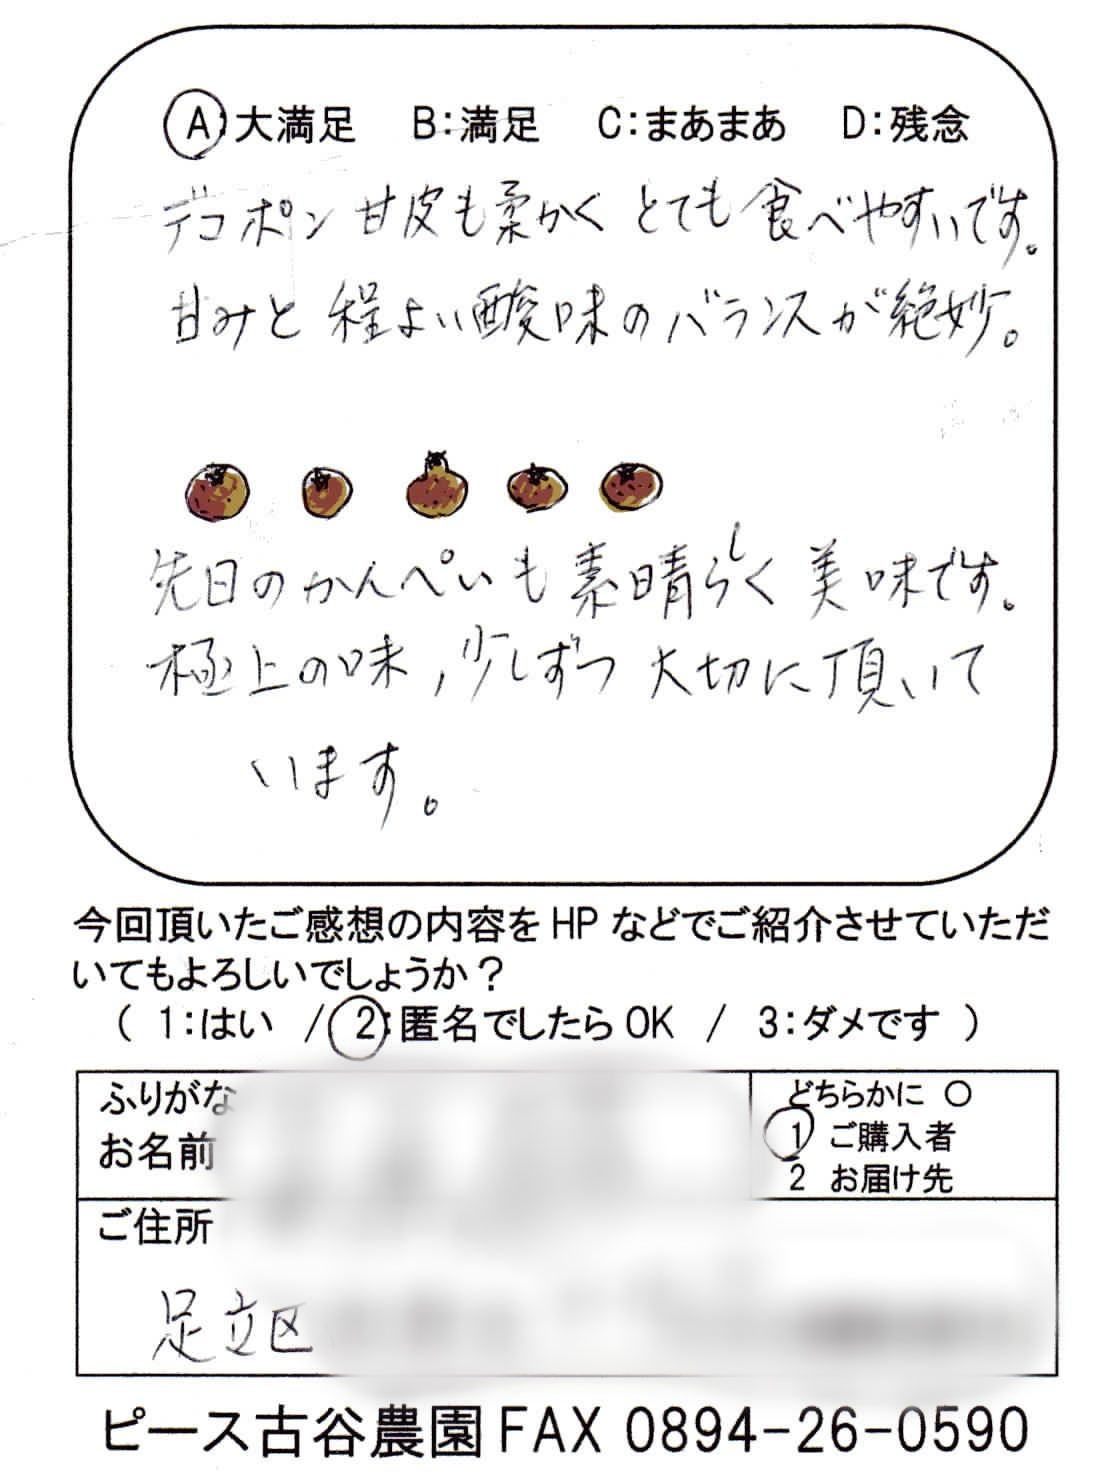 A:大満足 B:満足 C:まあまあ D:残念
デコポン 甘皮も柔かく とても 食べやすいです。
甘みと 程よい酸味のバランスが絶妙。
先日のかんぺいも素晴らしく 美味です。
極上の味,少しずつ 大切に頂いて
います。
今回頂いたご感想の内容をHPなどでご紹介させていただ
いてもよろしいでしょうか?
( 1:はい / 2:匿名でしたらOK / 3:ダメです )
ふりがな
お名前
どちらかに ○
1 ご購入者
2 お届け先
ご住所
足立区
ピース古谷農園 FAX 0894-26-0590